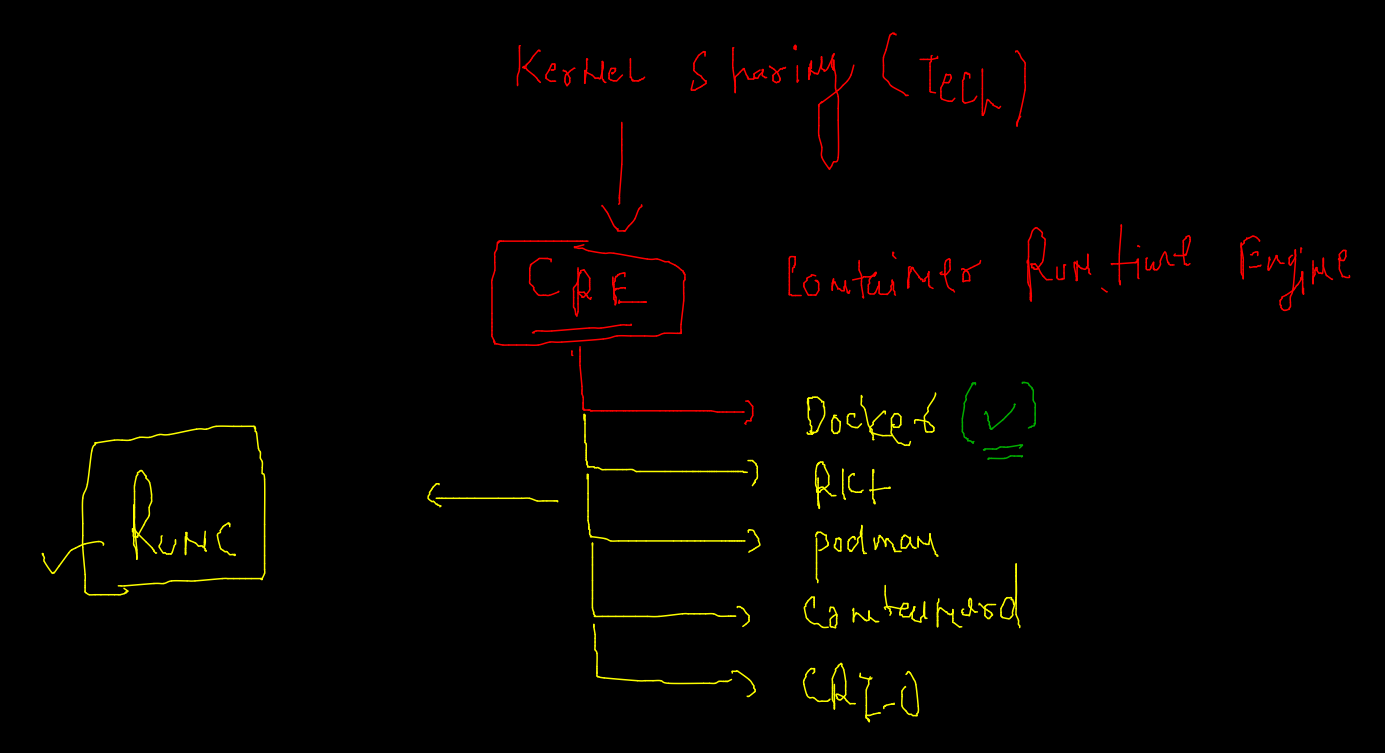 Kernel Sharing (Tech)
CRE
Container Run time Engine
Docker (✓)
RKt
podman
Containerd
CRI-O
RunC